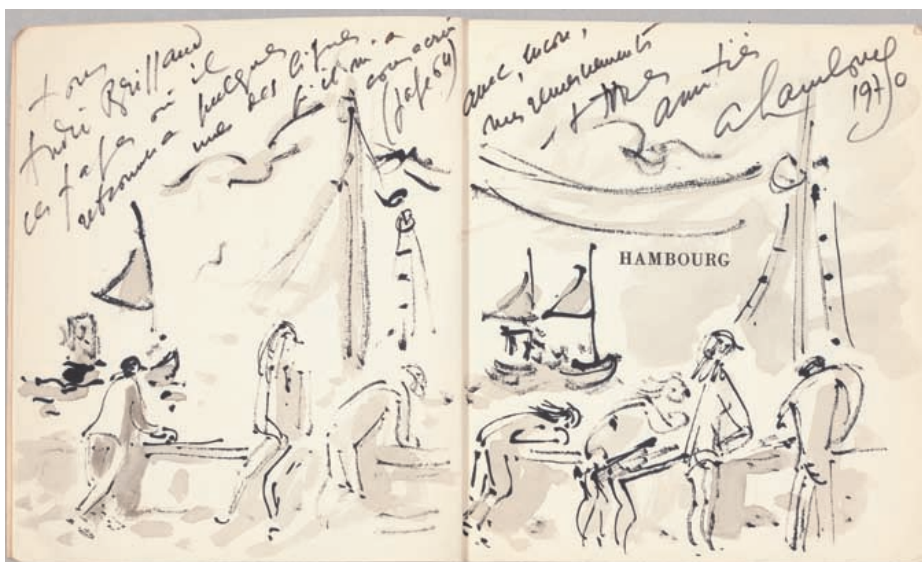 Pour
André
ces pages où il
retrouvera quelques
unes des lignes
qu'il m'a consacré
(page 64)
avec, encore,
mes remerciements
et amitiés
aHambourg
1970
HAMBOURG